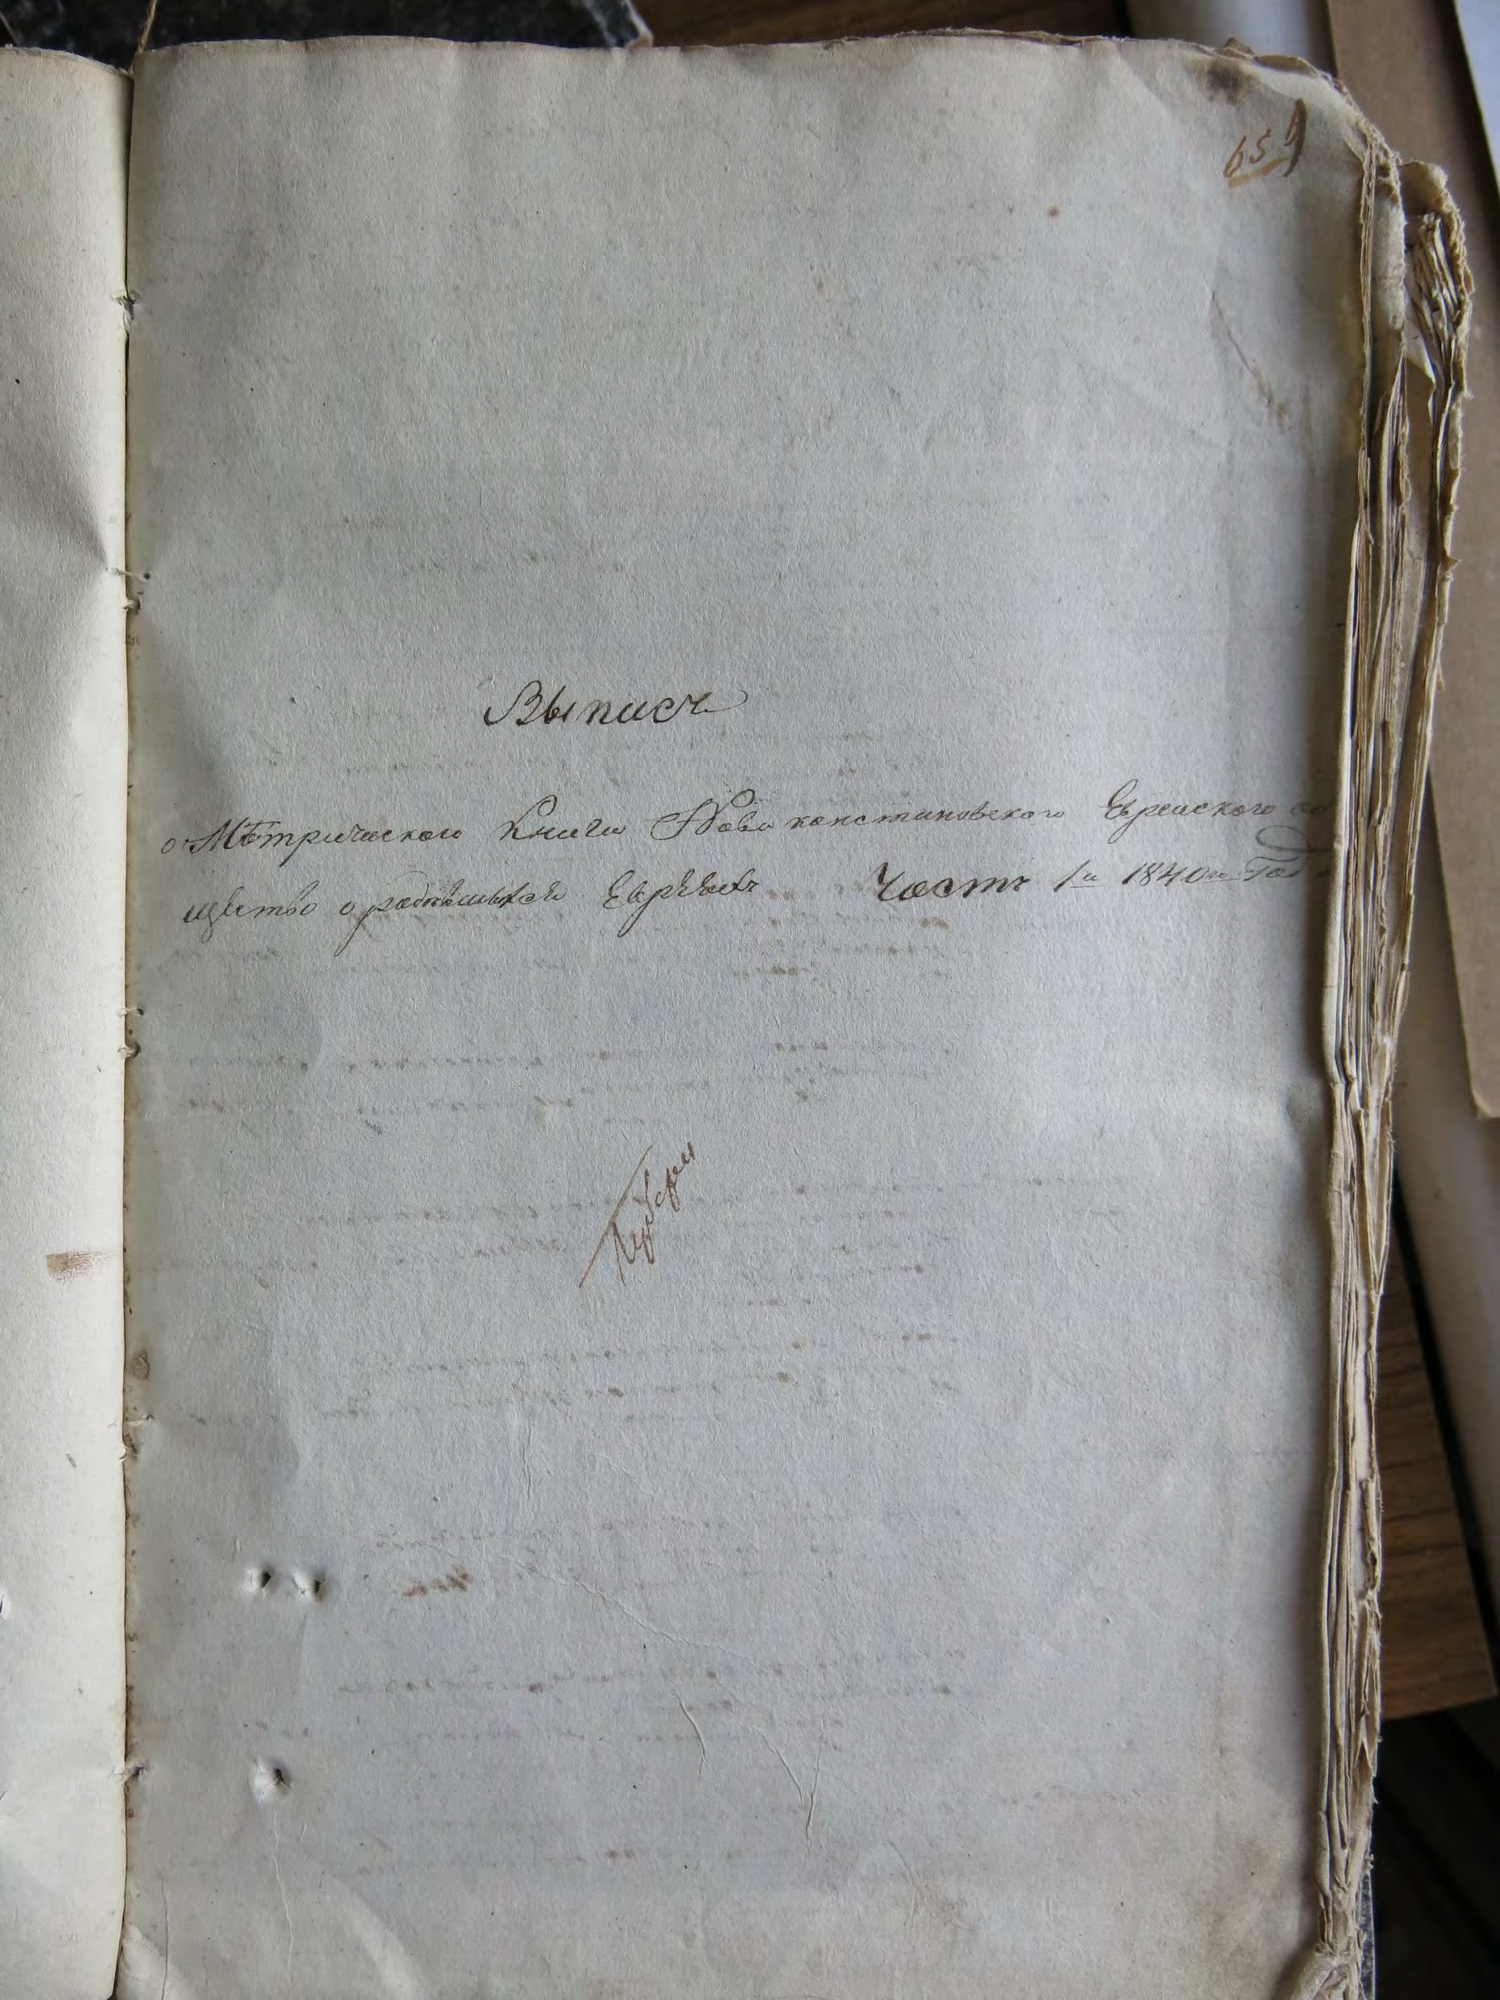 659
Выпись
о Метрическаго Книги Новоконстановскаго Еврейского об
щество о родившихся Евреех Часть 1я 1840го Года